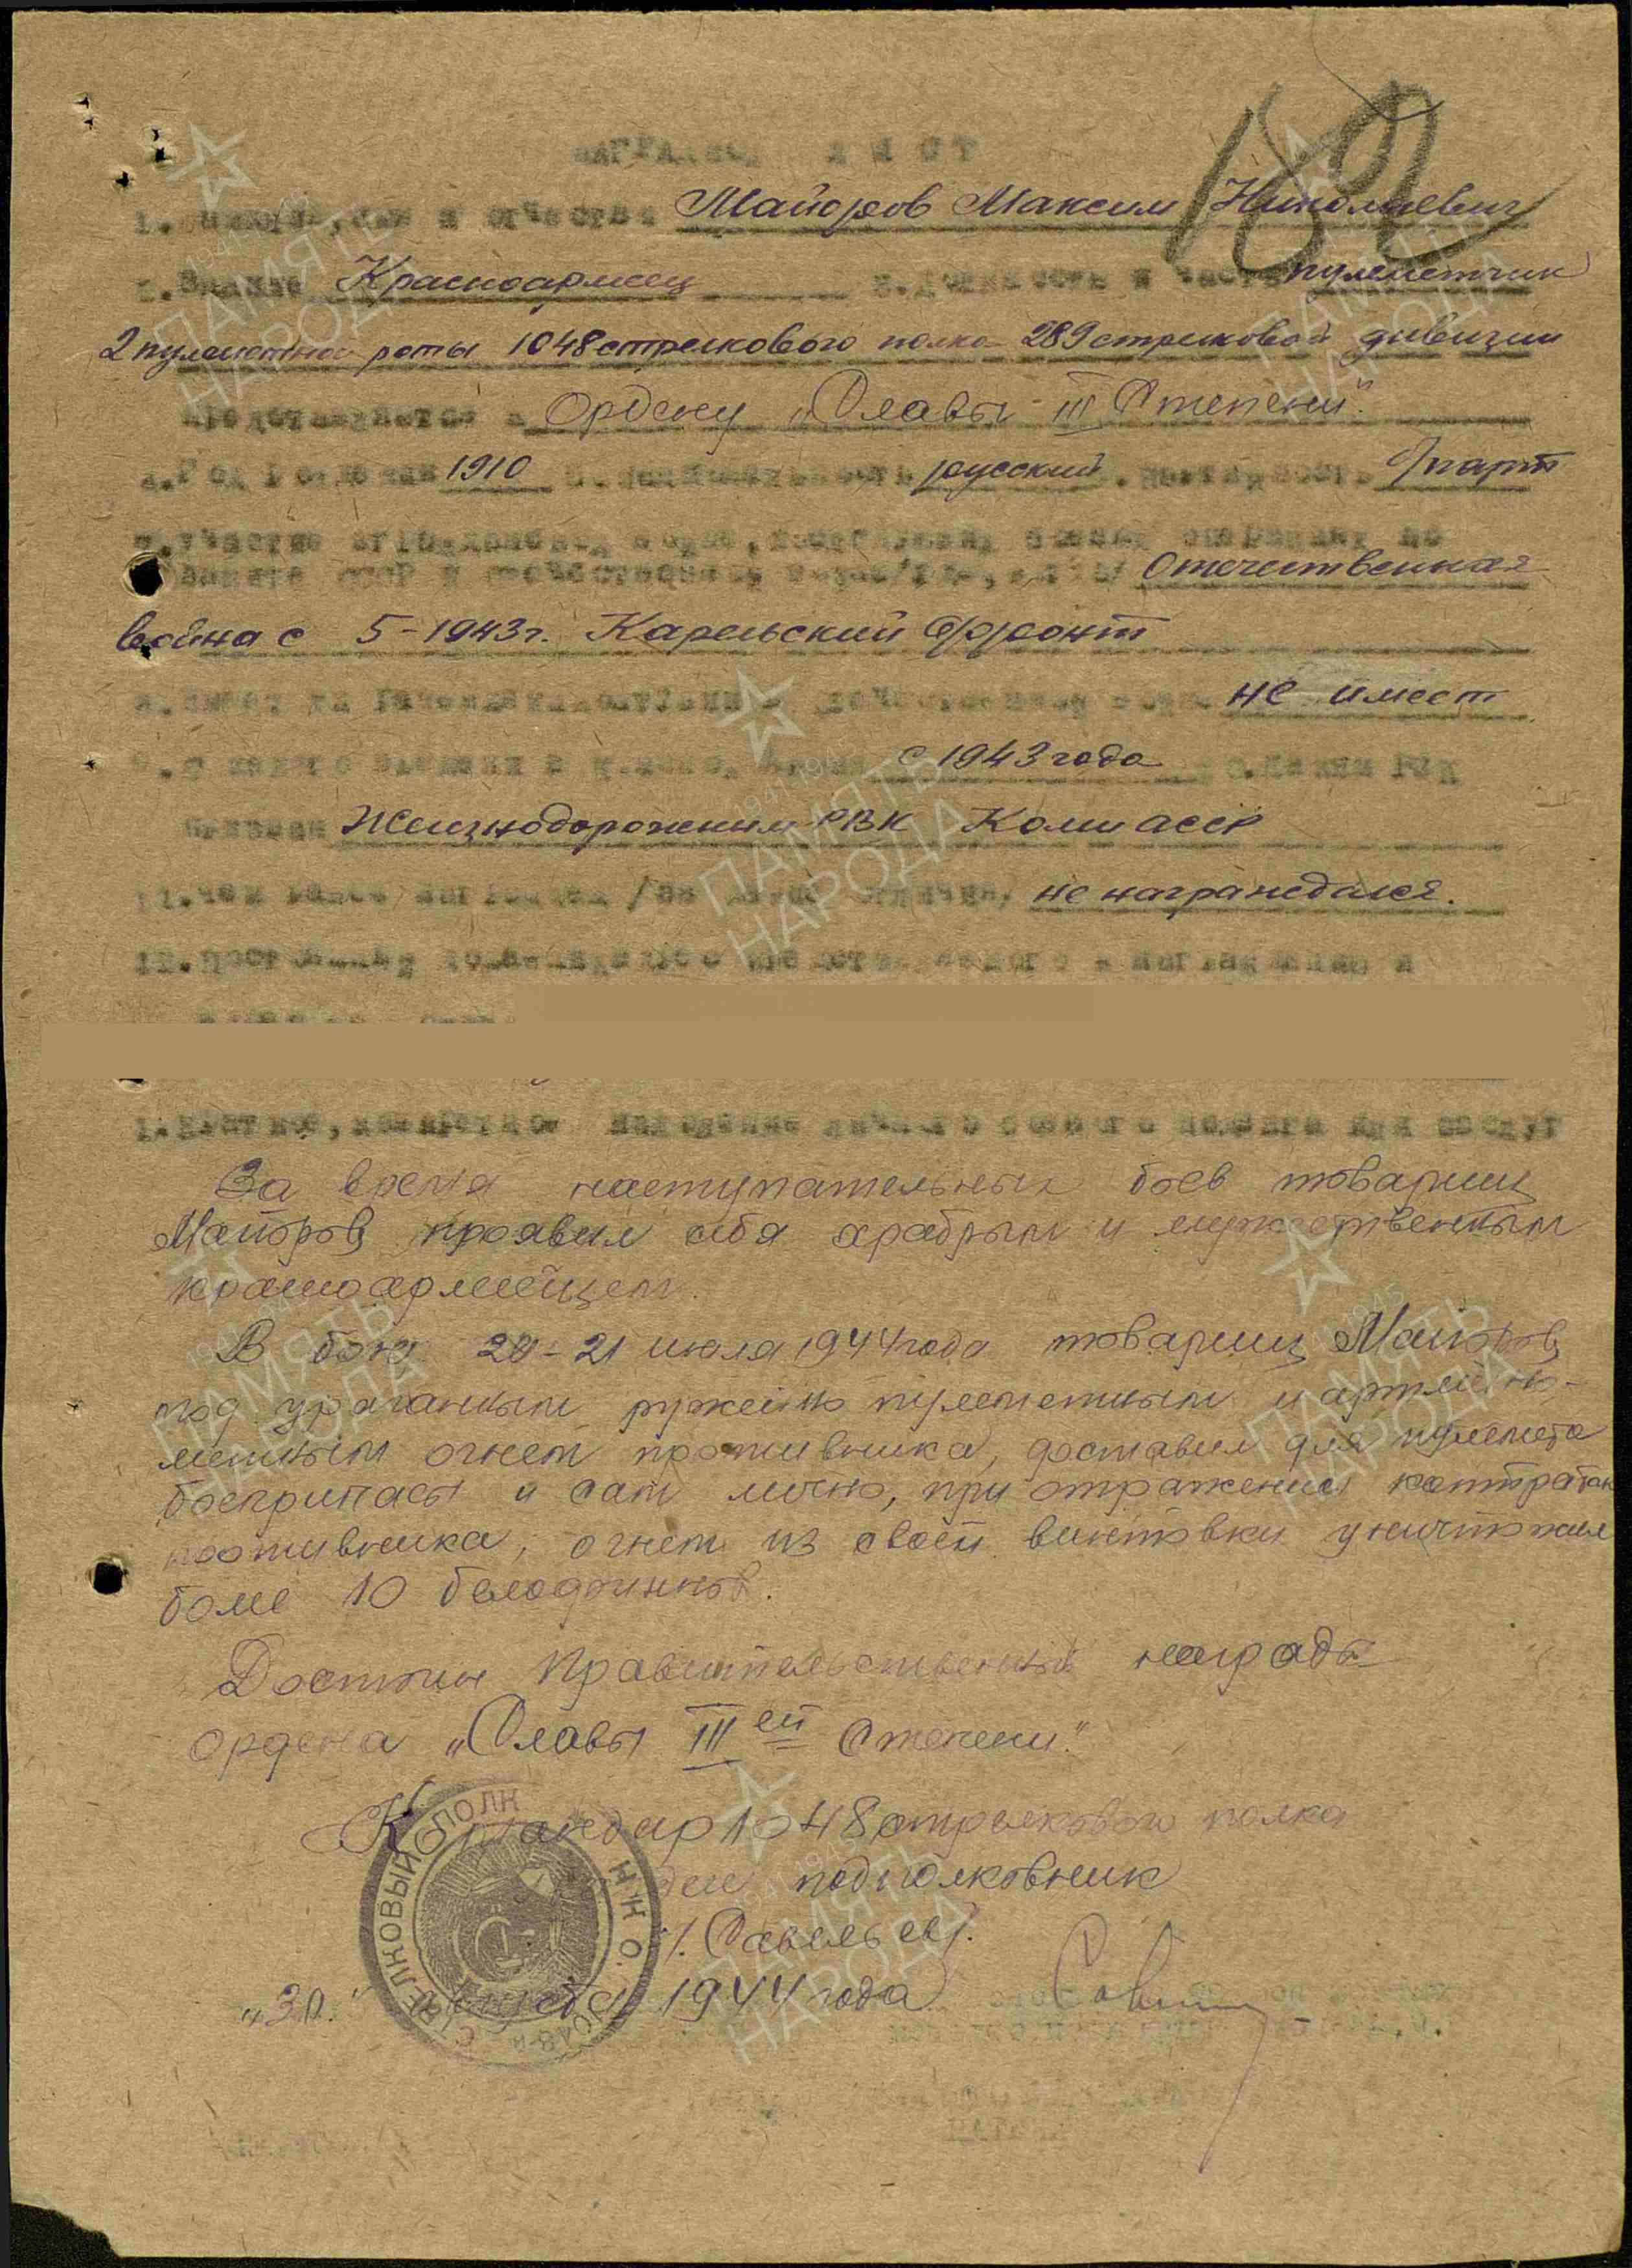 НАГРАДНОЙ ЛИСТ
182
1. Фамилия, имя и отчество Майоров Максим Николаевич
2. Звание Красноармеец 3. Должность и часть пулеметчик
2 пулеметной роты 1048 стрелкового полка 289 стрелковой дивизии
Представляется к Ордену „Славы III Степени".
4. Год рождения 1910 5. Национальность русский 6. Партийность б/парт
7. Участие в гражданской войне, последующих боевых операциях по
защите СССР и отечественной войне /где, когда/ Отечественная
война с 5-1943 г. Карельский Фронт
8. Имеет ли ранения и контузии в отечественной войне не имеет
9. С какого времени в Красной Армии с 1943 года 10. Каким РВК
призван Железнодорожным РВК Коми АССР
11. Чем ранее награжден /за какие отличия/ не награждался.
12. Постоянный домашний адрес представляемого к награждению и
1. Краткое, конкретное изложение личного боевого подвига или заслуг
За время наступательных боев товарищ
Майоров проявил себя храбрым и мужественным
красноармейцем.
В бою 20-21 июля 1944 года товарищ Майоров,
под ураганным ружейно пулеметным и арт. мино-
метным огнем противника, доставил для пулемета
боеприпасы и сам лично, при отражении контратак
противника, огнем из своей винтовки уничтожил
более 10 белофиннов.
Достоин Правительственный награды
ордена „Славы III ей Степени".
Командир 1048 стрелкового полка
подполковник
/. Савельев/.
„30." августа 1944 года
СТРЕЛКОВЫЙ ПОЛК Н.К.О. 1048-й
ПАМЯТЬ НАРОДА
1941-1945